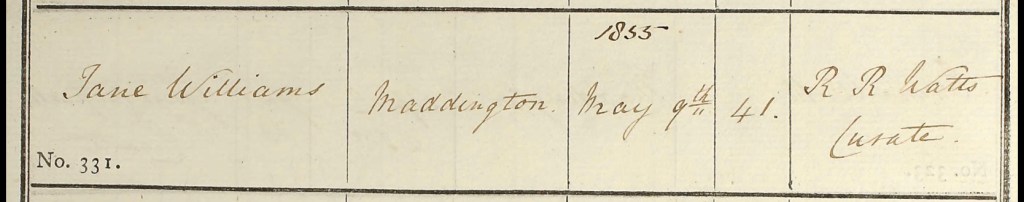 1855
Jane Williams
Maddington.
May 9th
41.
R R Watts
Curate.
No. 331.